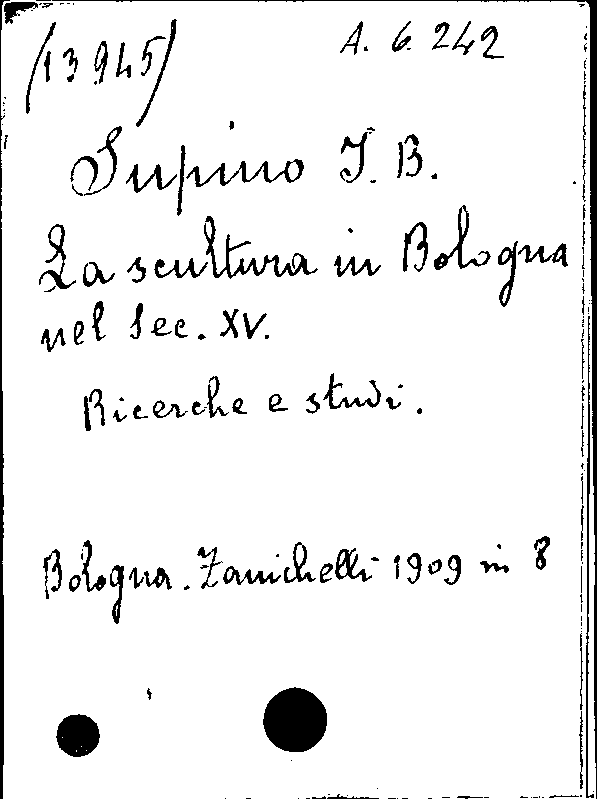 (13945)
A. 6. 242
Supino I. B.
La scultura in Bologna
nel Sec. XV.
Ricerche e studi.
Bologna. Zanichelli 1909 in 8